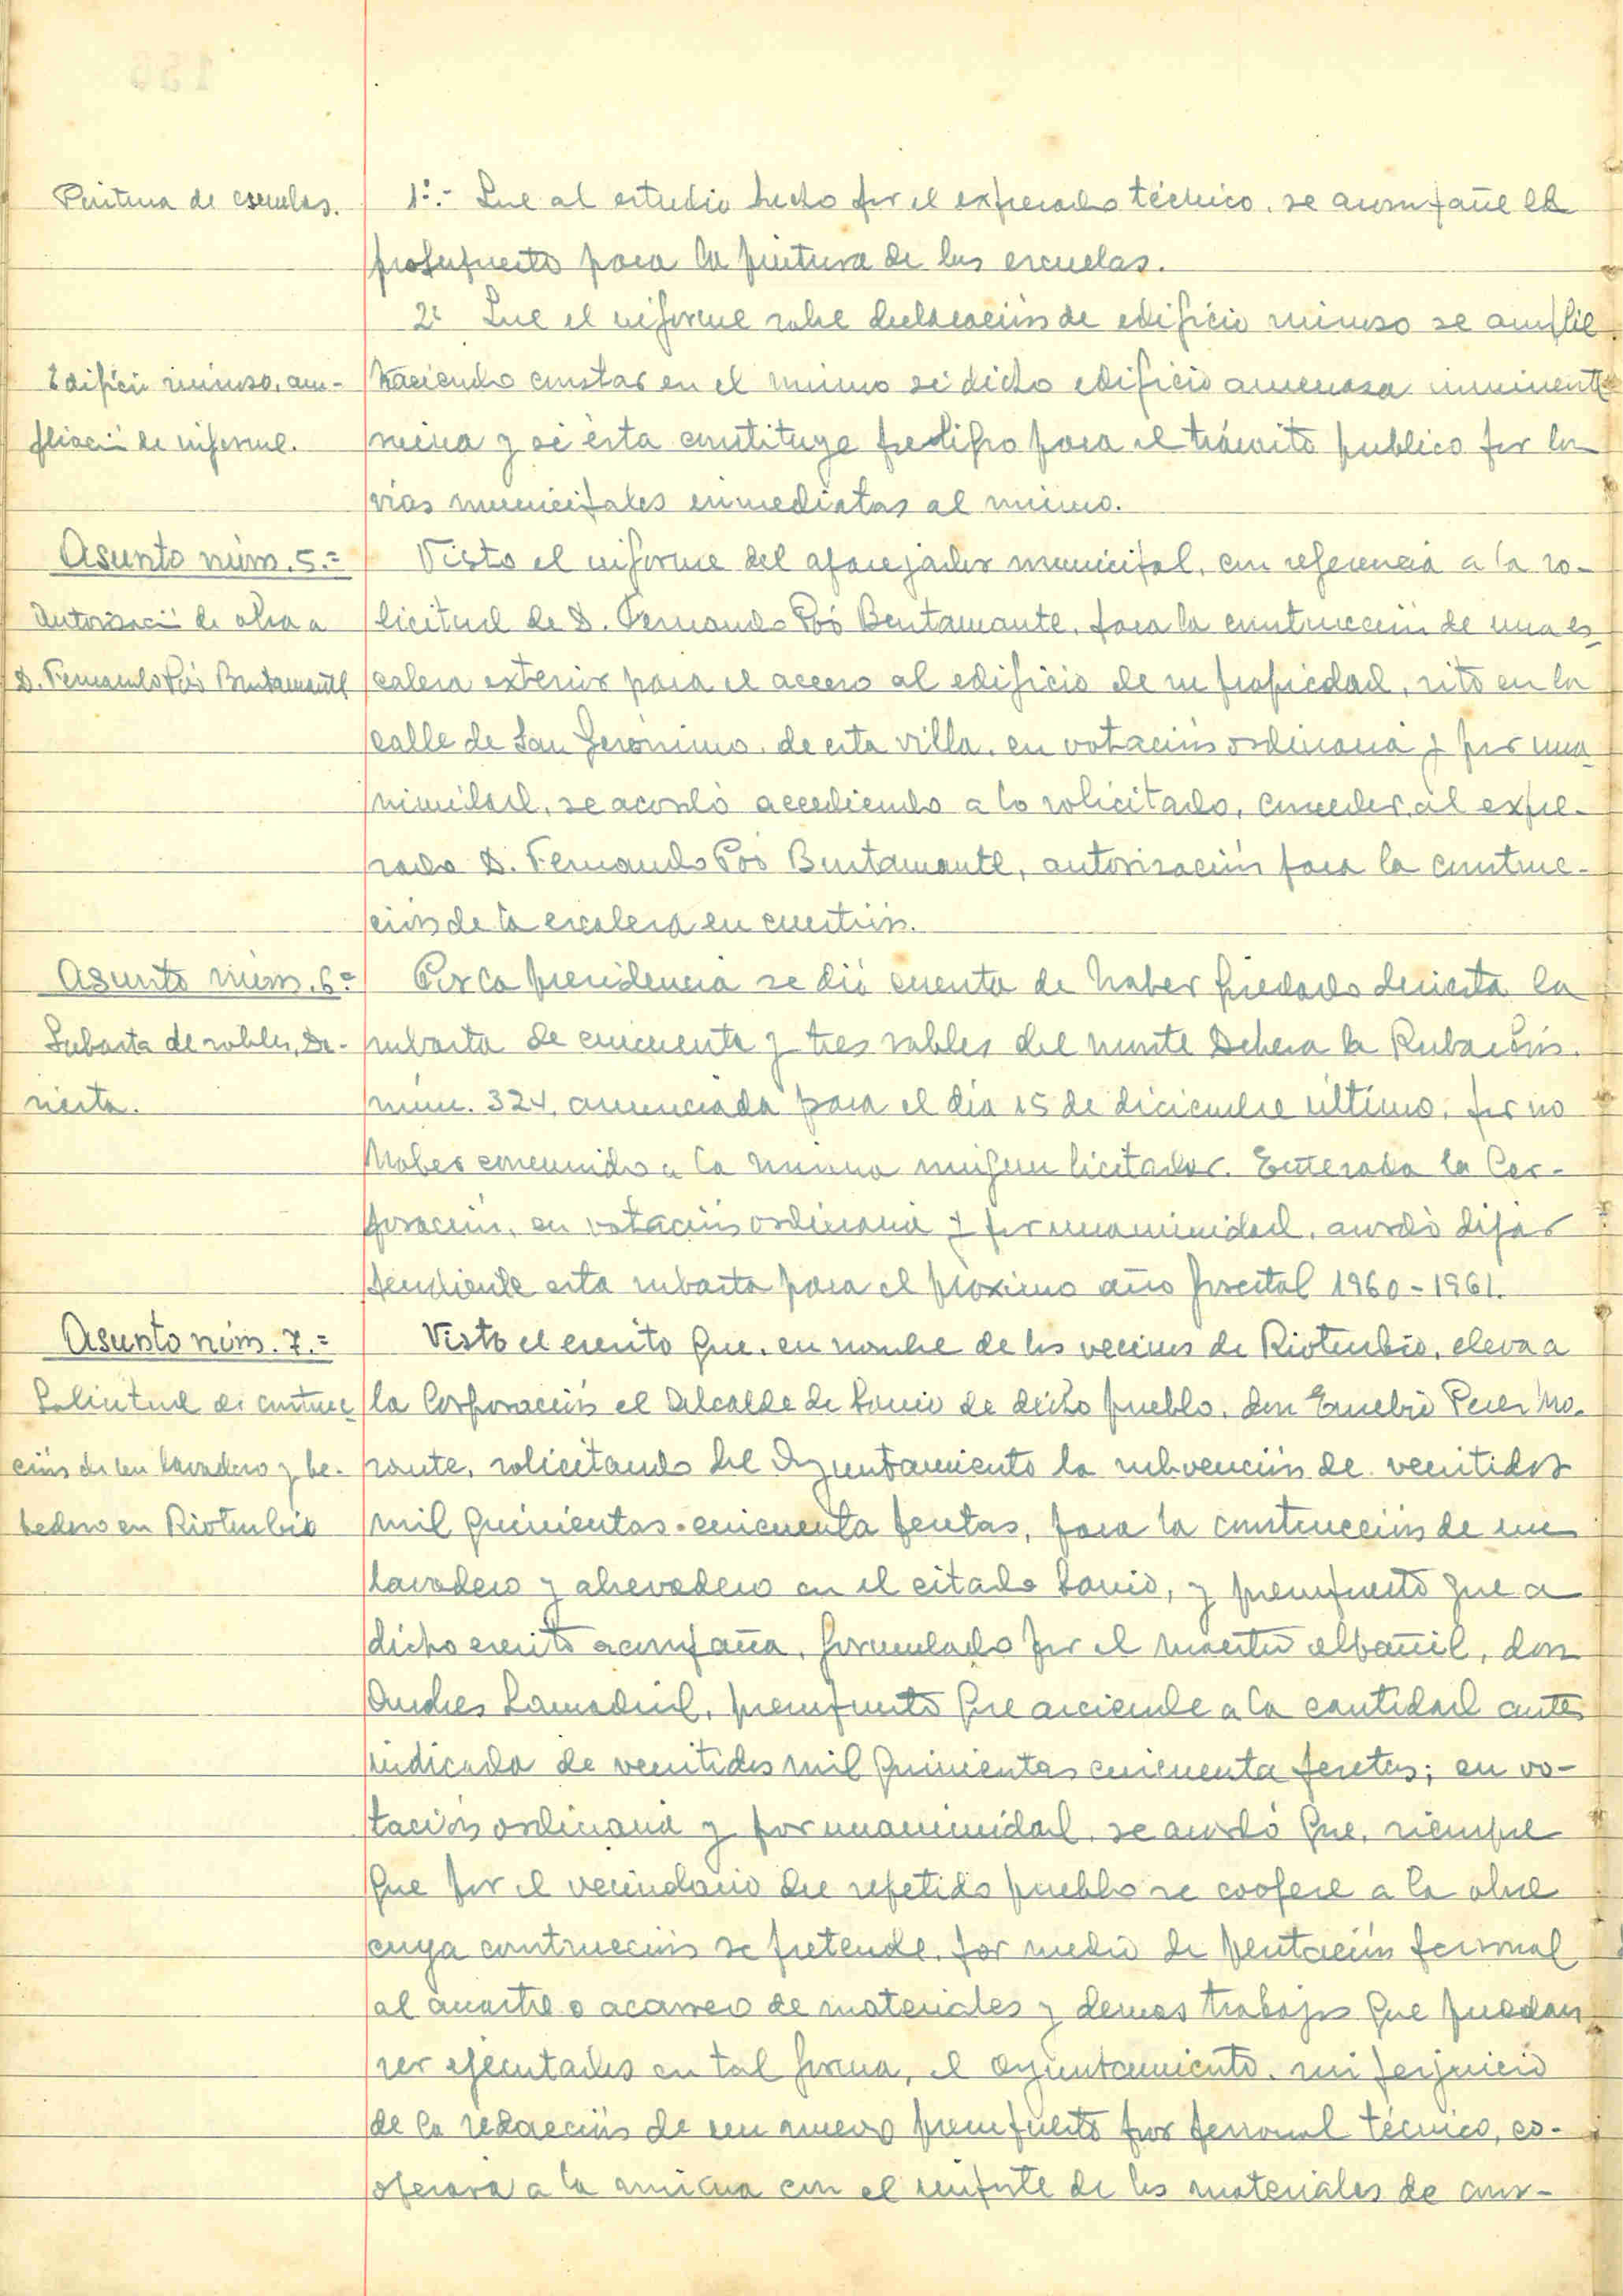 Pintura de escuelas.
1º.- Que al estudio hecho por el expresado técnico, se acompañe el
presupuesto para la pintura de las escuelas.
2º Que el informe sobre declaración de edificio ruinoso se amplie
Edificio ruinoso, am-
pliación de informe.
haciendo constar en el mismo si dicho edificio amenaza inminente
ruina y si ésta constituye peligro para el tránsito publico por las
vias municipales inmediatas al mismo.
Asunto núm. 5.=
Autorización de obra a
D. Fernando Póo Bustamante
Visto el informe del aparejador municipal, con referencia a la so-
licitud de D. Fernando Póo Bustamante, para la construccion de una es-
calera exterior para el acceso al edificio de su propiedad, sito en la
calle de San Gerónimo, de esta villa, en votación ordinaria y por una-
nimidad, se acordó accediendo a lo solicitado, conceder al expre-
sado D. Fernando Póo Bustamante, autorización para la construc-
ción de la escalera en cuestión.
Asunto núm. 6=
Subasta de robles, de-
sierta.
Por la presidencia se dió cuenta de haber quedado desierta la
subasta de cincuenta y tres robles del monte Dehesa la
núm. 324, anunciada para el día 15 de diciembre último, por no
haber concurrido a la misma ningun licitador. Enterada la Cor-
poración, en votación ordinaria y por unanimidad, acordó dejar
pendiente esta subasta para el próximo año forestal 1960-1961.
Asunto núm. 7.=
Solicitud de construc
ción de un lavadero y be-
bedero en Rioturbio
Visto el escrito que, en nombre de los vecinos de Rioturbio, eleva a
la Corporación el Alcalde de barrio de dicho pueblo, don Eusebio Perez Mo-
rante, solicitando del Ayuntamiento la subvención de veintidos
mil quinientas cincuenta pesetas, para la construcción de un
lavadero y abrevadero en el citado barrio, y presupuesto que a
dicho escrito acompaña, formulado por el maestro albañil, don
Andres Lamadrid, presupuesto que asciende a la cantidad antes
indicada de veintidos mil quinientas cincuenta pesetas; en vo-
tación ordinaria y por unanimidad, se acordó que, siempre
que por el vecindario del repetido pueblo se coopere a la obra
cuya construcción se pretende, por medio de prestación personal
al arrastre o acarreo de materiales y demas trabajos que puedan
ser ejecutados en tal forma, el Ayuntamiento, sin perjuicio
de la redacción de un nuevo presupuesto por personal técnico, co-
operará a la misma con el importe de los materiales de cons-